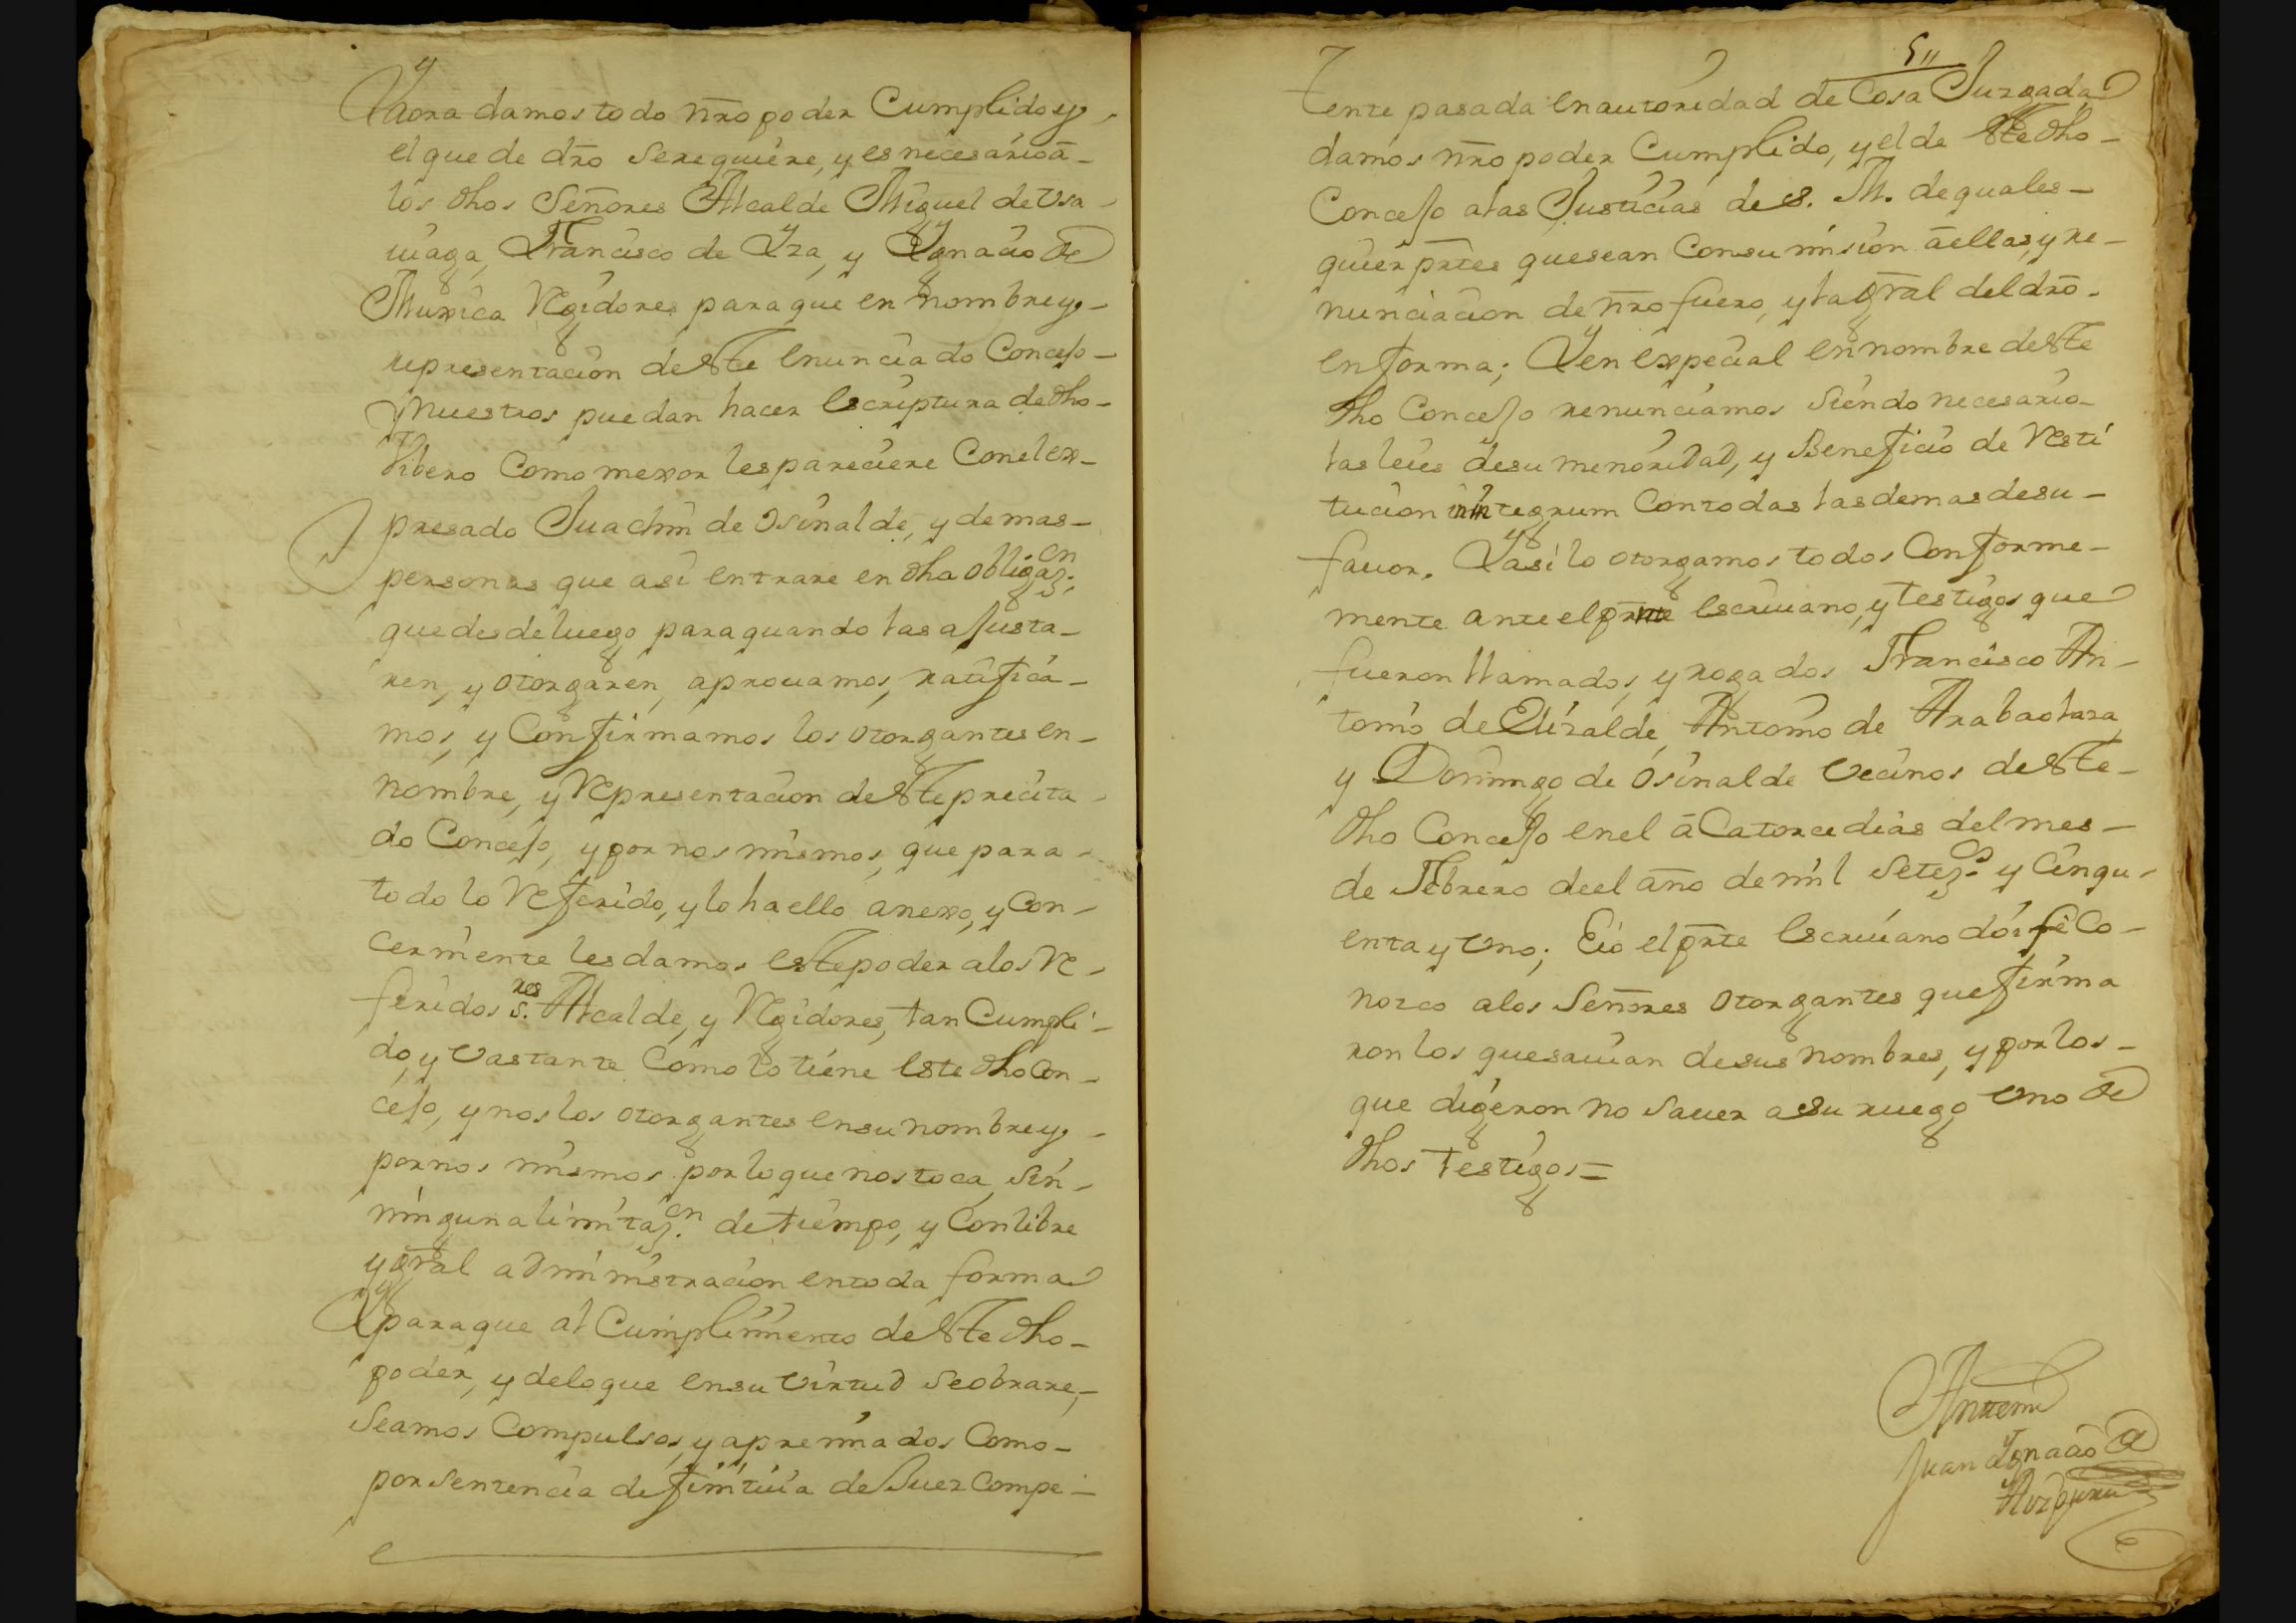 Y aora damos todo nr̃o poder Cumplido y
el que de dr̃o se requiere, y es necesario ã
los dhos Señores Alcalde Miguel de Vsa
uiaga, Francisco de Yza, y Ygnacio de
Muxica Regidores para que en nombre y
representacion de este enunciado Concejo
y nuestros puedan hacer escriptura de dho
Vibero Como mexor les pareciere Con el ex
presado Juachin de Osinalde, y demas
personas que asi entrare en dha obligaz.on
que desde luego para quando las ajusta
ren, y otorgaren, aprouamos, ratifica
mos, y Confirmamos los otorgantes en
nombre, y Representacion de este precita
do Concejo, y por nos mismos, que para
todo lo Referido, y lo ha ello anexo, y Con
cerniente les damos este poder a los Re
feridos S.res Alcalde, y Regidores, tan Cumpli
do, y vastante Como lo tiene este dho Con
cejo, y nos los otorgantes en su nombre y
por nos mismos por lo que nos toca, sin
ninguna limitaz.on de tiempo, y Con libre
y gr̃al administracion en toda forma
Y para que al Cumplimiento de este dho
poder, y de lo que en su virtud se obrare,
seamos Compulsos, y apremiados Como
por sentencia difinitiua de Juez Compe
511
tente pasada en autoridad de Cosa Juzgada
damos nr̃o poder Cumplido, y el de este dho
Concejo a las Justicias de S. M. de quales
quier pr̃tes que sean Con sumision ã ellas, y re
nunciacion de nr̃o fuero, y la gr̃al del dr̃o
en forma; Y en expecial en nombre de este
dho Concejo renunciamos siendo necesario
las leies de su menoridad, y Beneficio de Resti
tucion in integrum Con todas las demas de su
fauor. Y asi lo otorgamos todos Conforme
mente ante el pr̃nte escriuano, y testigos que
fueron llamados, y rogados Francisco An
tonio de Elizalde, Antonio de Arabaolaza
y Domingo de Osinalde vecinos de este
dho Concejo en el ã Catorce dias del mes
de Febrero de el año de mil setez.s y Cinqu
enta y vno; E io el pr̃te escriuano doi fe Co
nozco a los Señores otorgantes que firma
ron los que sauian de sus nombres, y por los
que digeron no sauer a su ruego vno de
dhos testigos =
Ante mi
Juan Ygnacio de